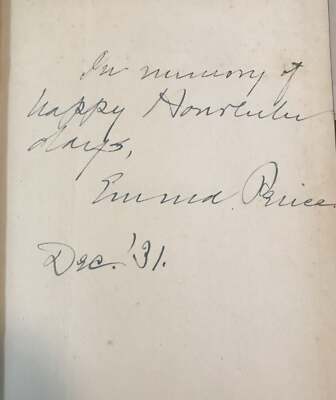 In memory of
happy Honolulu
days,
Emma. Price.
Dec. '31.